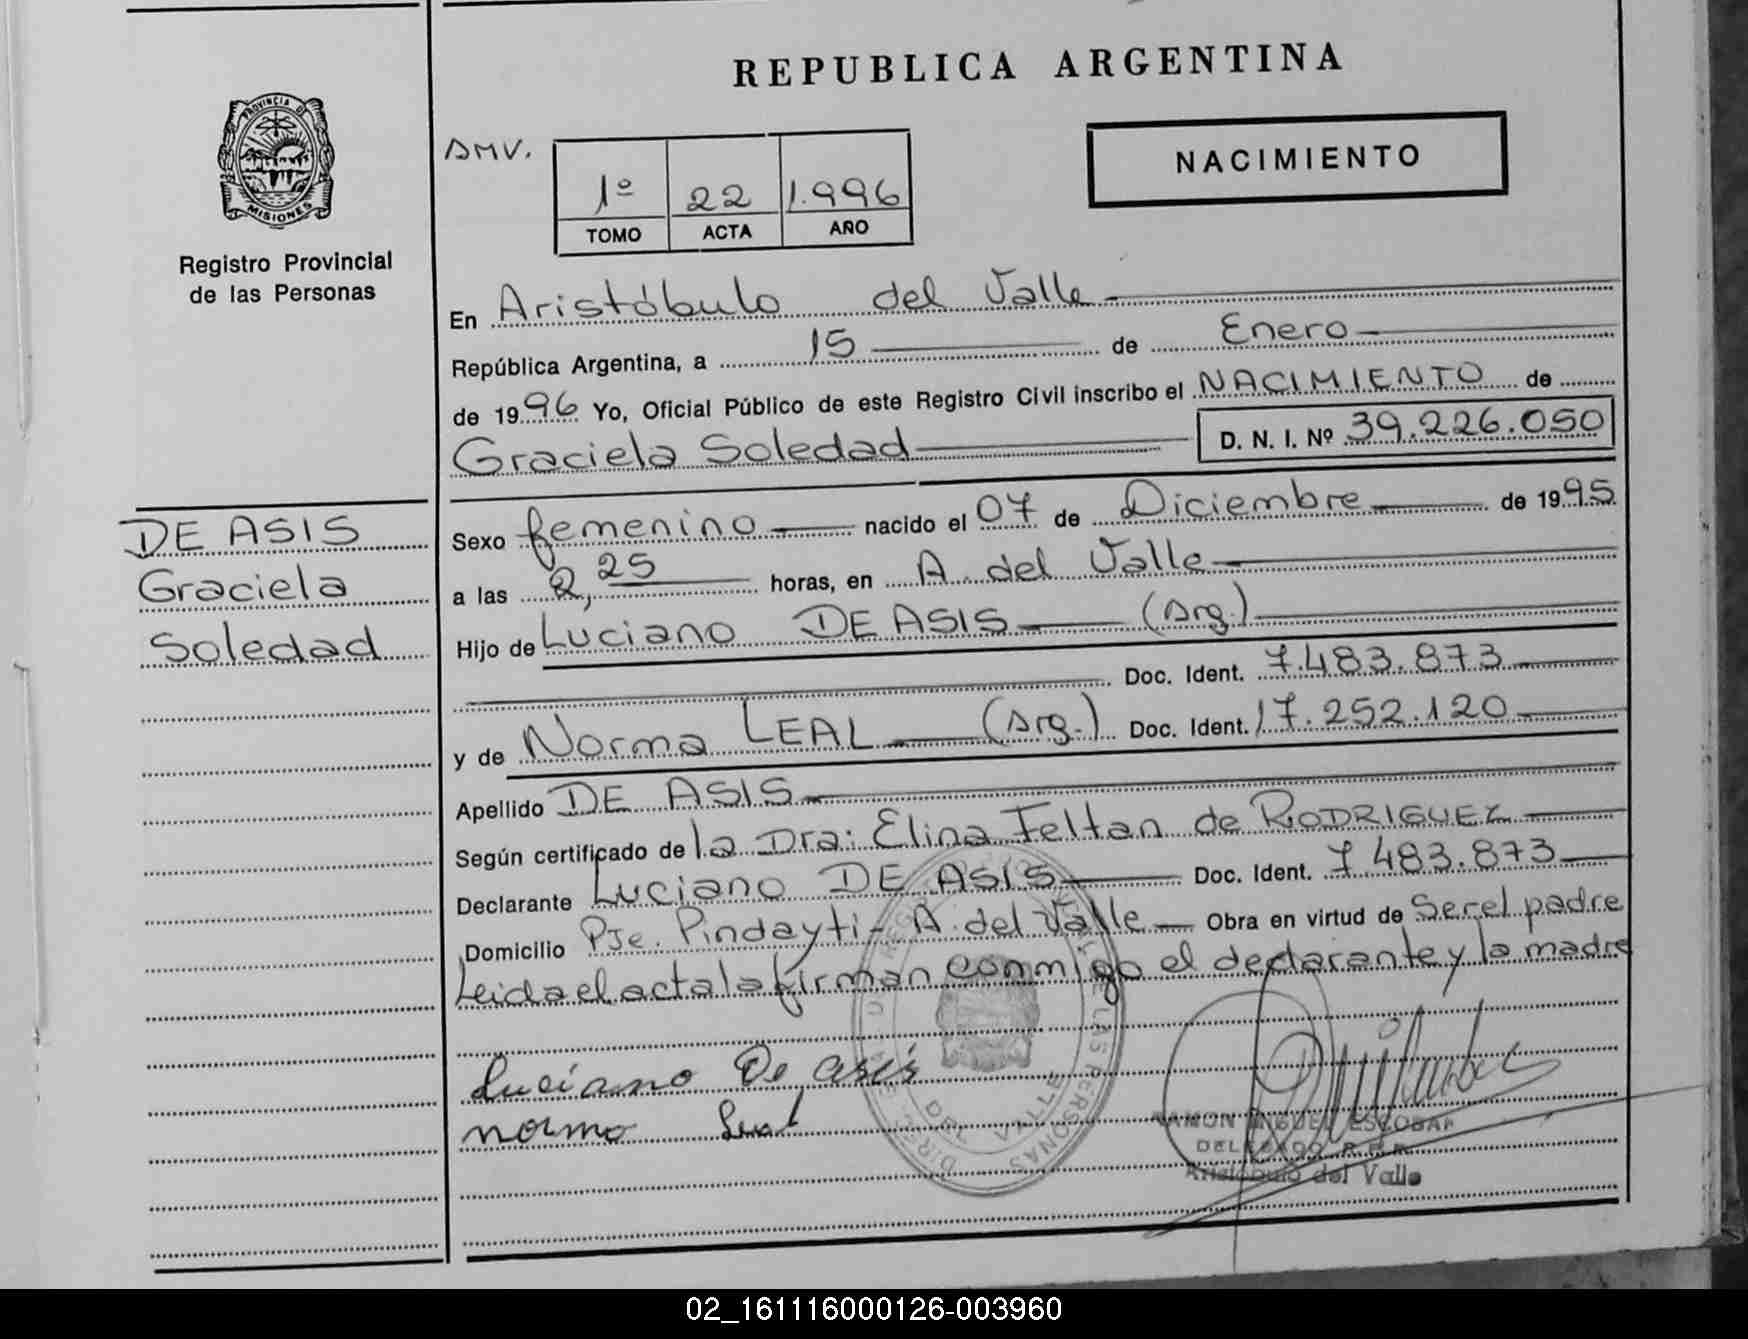 REPUBLICA ARGENTINA
PROVINCIA D
MISIONES
Registro Provincial
de las Personas
DMV.
1º 22 1.996
TOMO ACTA AÑO
NACIMIENTO
En Aristóbulo del Valle
República Argentina, a 15 de Enero
de 1996 Yo, Oficial Público de este Registro Civil inscribo el NACIMIENTO de
Graciela Soledad D. N. I. Nº 39.226.050
DE ASIS
Graciela
Soledad
Sexo femenino nacido el 07 de Diciembre de 1995
a las 2,25 horas, en A. del Valle
Hijo de Luciano DE ASIS (Arg.)
Doc. Ident. 7.483.873
y de Norma LEAL (Arg.) Doc. Ident. 17.252.120
Apellido DE ASIS
Según certificado de la Dra: Elina Feltan de RODRIGUEZ
Declarante Luciano DE ASIS Doc. Ident. 7.483.873
Domicilio Pje. Pindayti- A. del Valle Obra en virtud de Ser el padre
Leida el acta la firman conmigo el declarante y la madre
Luciano De asis
norma Leal
DEL VALLE
LAS PERSONAS
RAMON MIGUEL ESCOBAR
DELEGADO R.P.P.
Aristóbulo del Valle
02_161116000126-003960